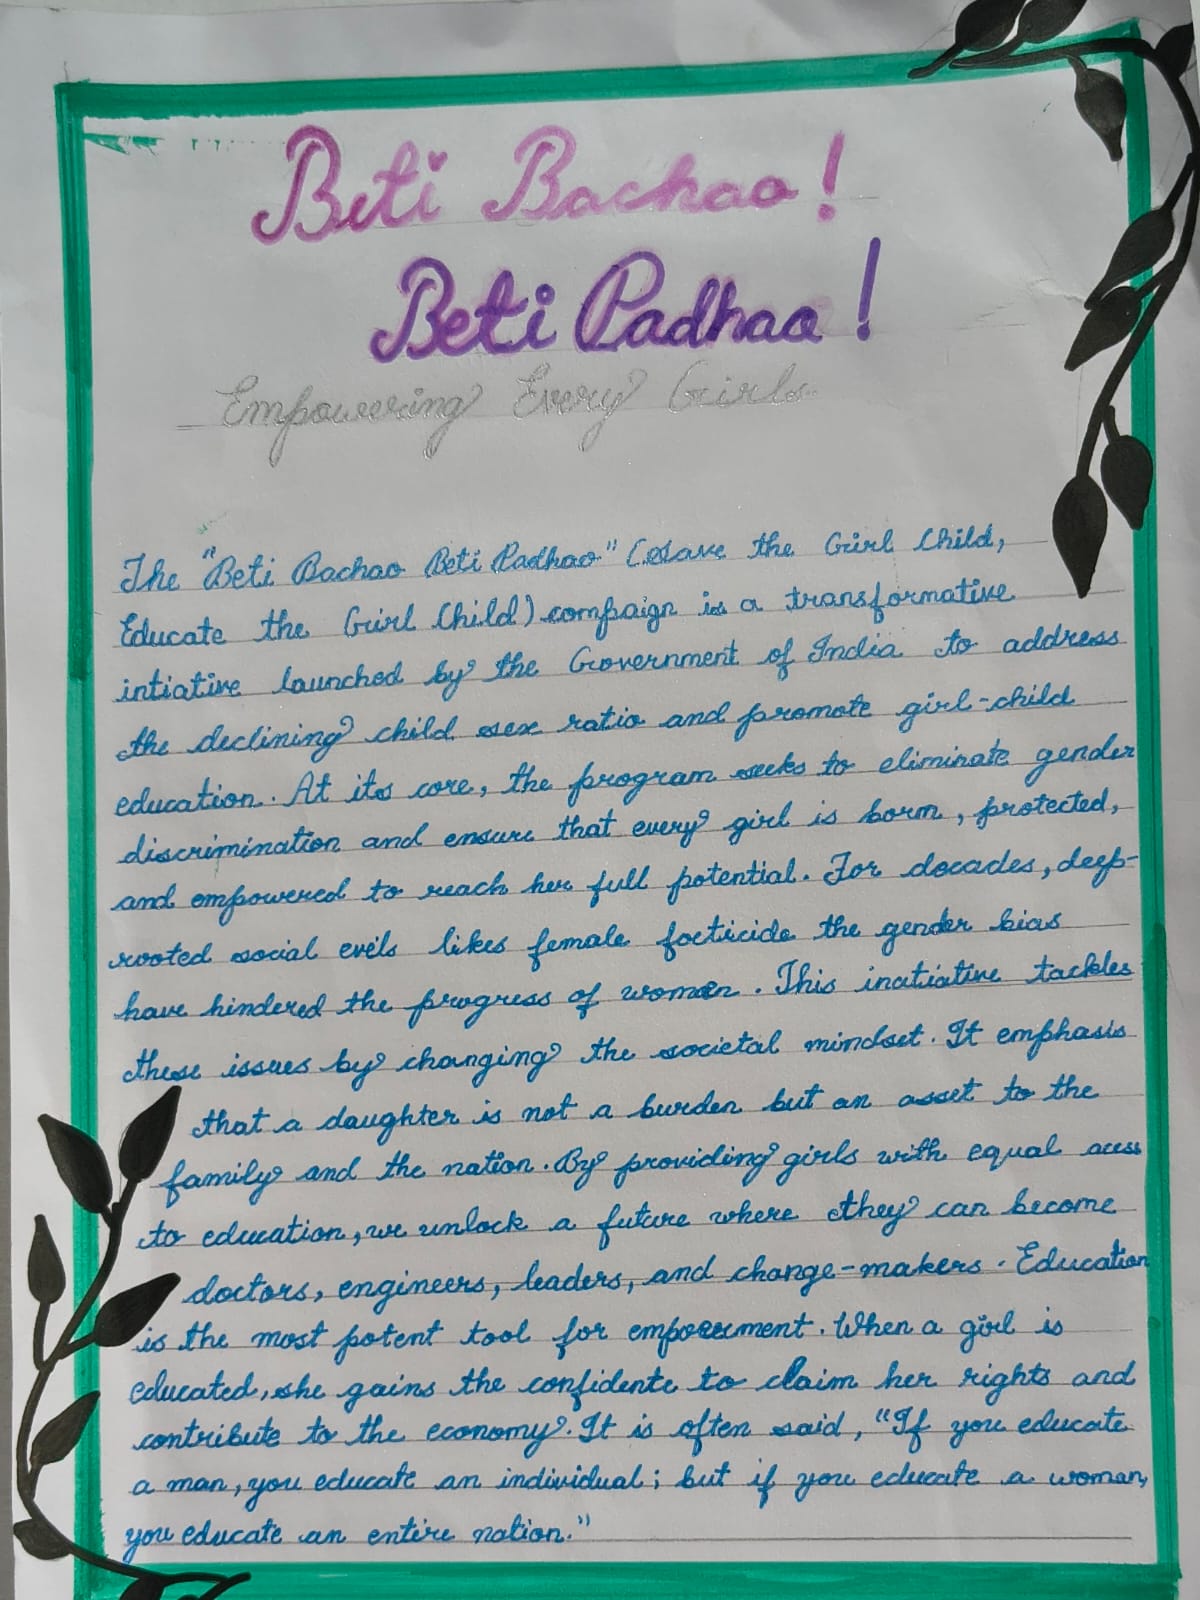 Beti Bachao!
Beti Padhao!
Empowering Every Girls.
The "Beti Bachao Beti Padhao" (Save the Girl Child,
Educate the Girl Child) compaign is a transformative
intiative launched by the Government of India to address
the declining child sex ratio and promote girl-child
education. At its core, the program seeks to eliminate gender
discrimination and ensure that every girl is born, protected,
and empowered to reach her full potential. For decades, deep-
rooted social evels likes female foeticide the gender bias
have hindered the progress of women. This inatiative tackles
these issues by changing the societal mindset. It emphasis
that a daughter is not a burden but an asset to the
family and the nation. By providing girls with equal acess
to education, we unlock a future where they can become
doctors, engineers, leaders, and change-makers. Education
is the most potent tool for empowerment. When a girl is
educated, she gains the confidente to claim her rights and
contribute to the economy. It is often said, "If you educate
a man, you educate an individual; but if you educate a woman,
you educate an entire nation."